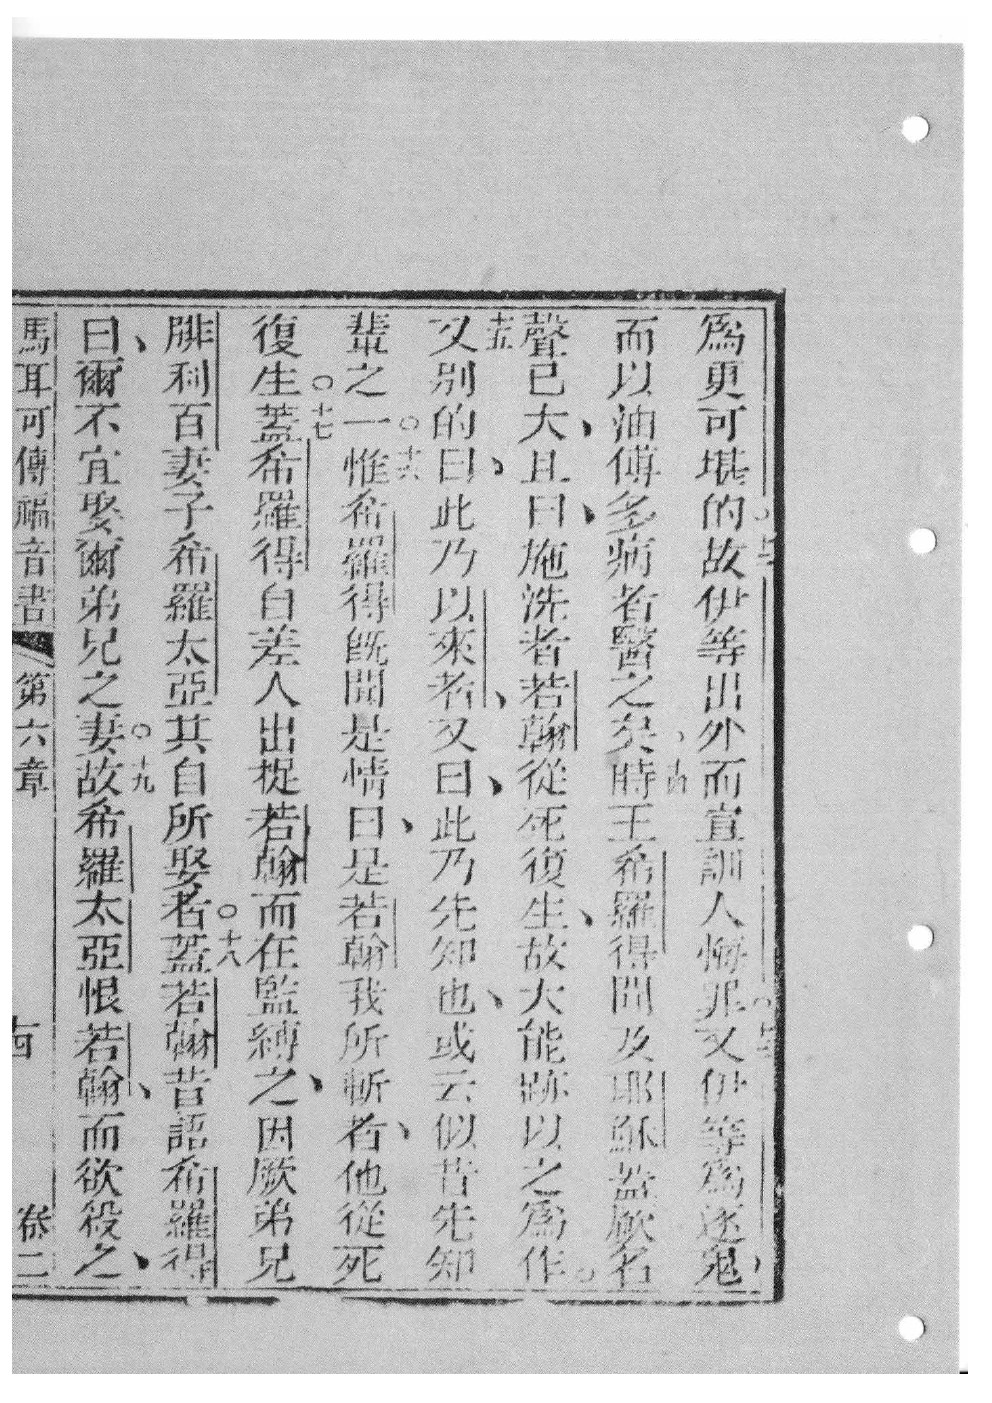 爲更可堪的。故伊等出外而宣訓人悔罪。又伊等爲逐鬼、
而以油傅多病者醫之矣、十四時王希羅得聞及耶穌蓋厥名
聲已大、且曰、施洗者若翰從死復生、故大能跡以之爲作。
十五又別的曰、此乃以來者、又曰、此乃先知也、或云似昔先知
輩之一。十六惟希羅得旣聞是情曰、是若翰我所斬者、他從死
復生。十七蓋希羅得自差人出捉若翰而在監縛之、因厥弟兄
腓利百妻子希羅太亞其自所娶者。十八蓋若翰昔語希羅得
曰、爾不宜娶爾弟兄之妻。十九故希羅太亞恨若翰、而欲殺之、
馬耳可傳福音書 第六章 卷二